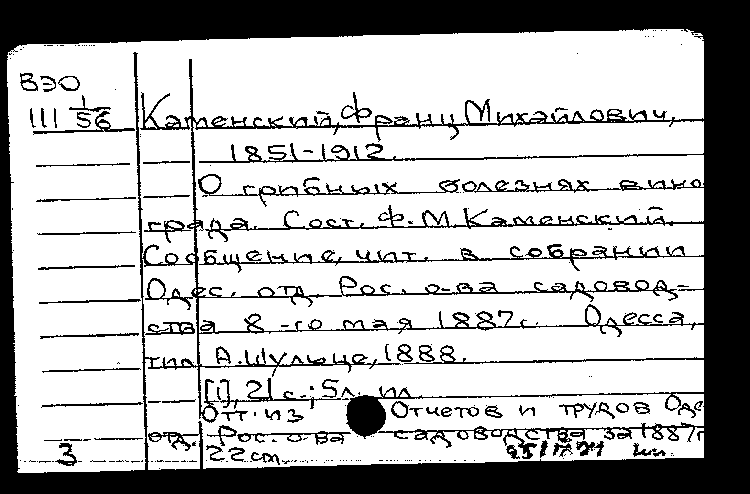 ВЭО
III 1/56 Каменский, Франц Михайлович,
1851-1912.
О грибных болезнях вино
града. Сост. Ф.М. Каменский.
Сообщение, чит. в собрании
Одес. отд. Рос. о-ва садовод=
ства 8-го мая 1887г. Одесса,
тип. А. Шульце, 1888.
[1], 21 с.; 5 л. ил.
Отт. из Отчетов и трудов Оде
отд. Рос. о-ва садоводства за 1887г
3 22 cm.